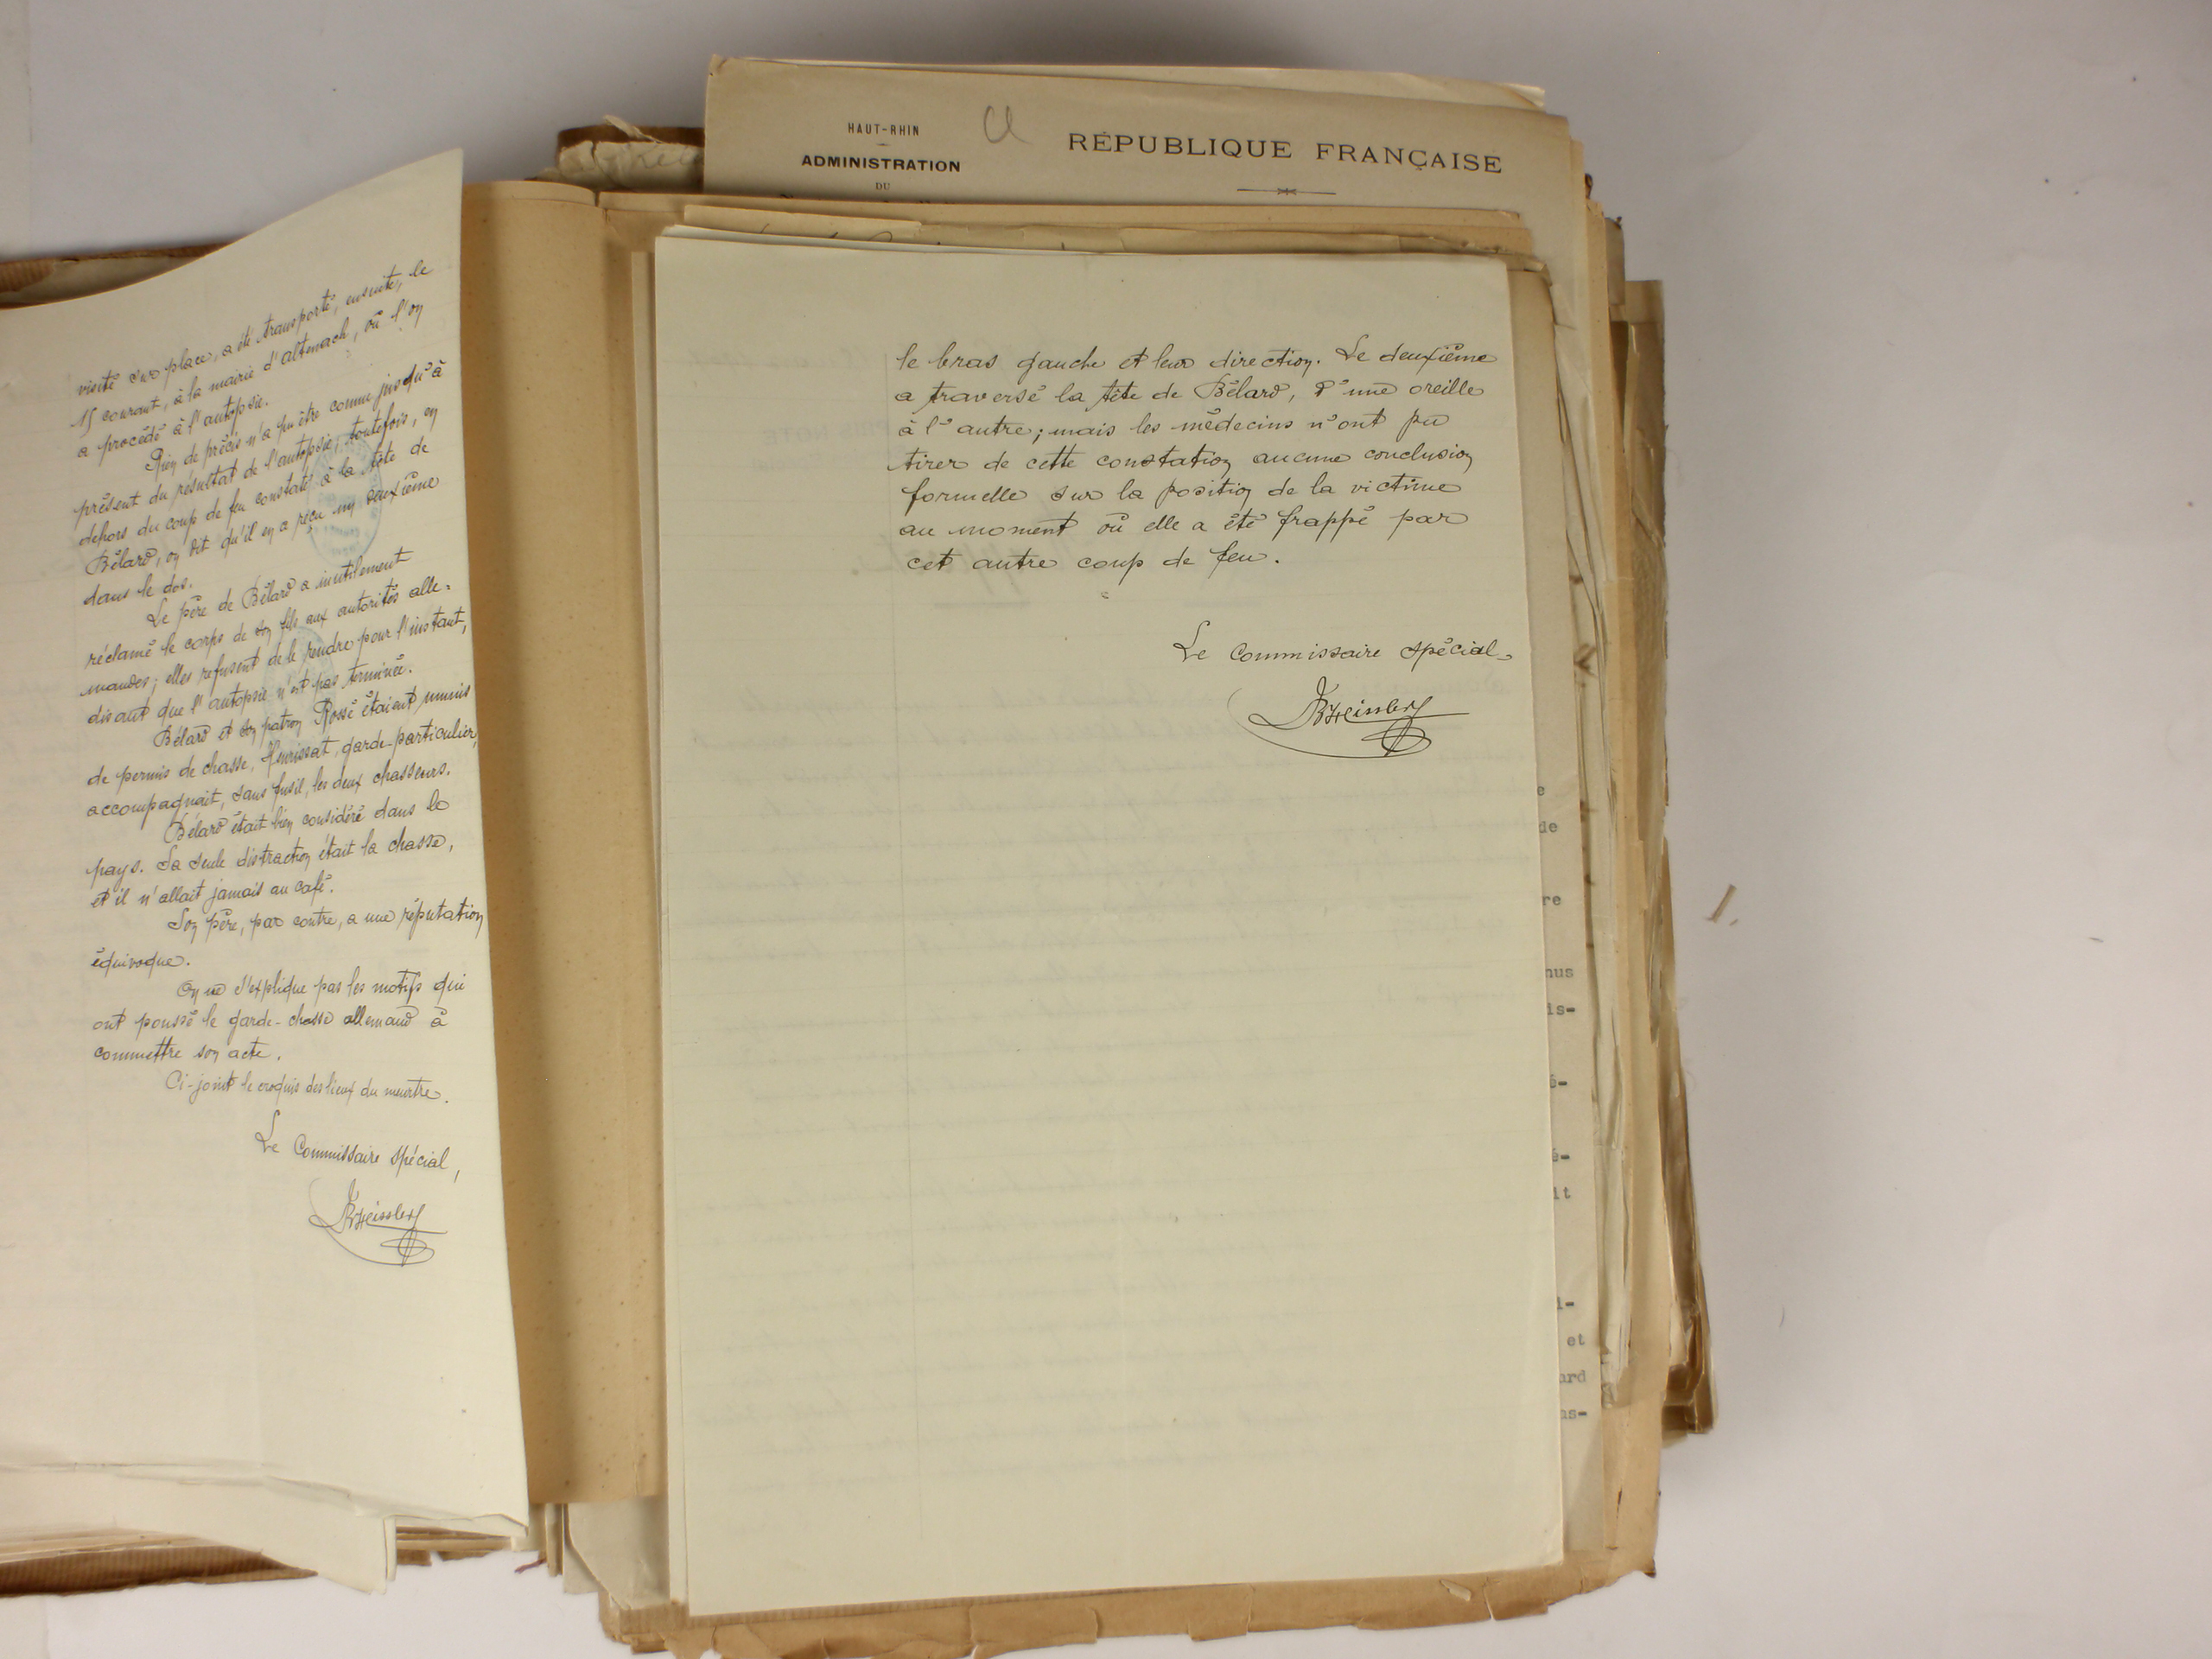 visité sur place, a été transporté, ensuite, le
15 courant, à la mairie d'altenach, où l'on
a procédé à l'autopsie.
Rien de précis n'a pu être connu jusqu'à
présent du résultat de l'autopsie; toutefois, en
dehors du coup de feu constaté à la tête de
Bélard, on dit qu'il en a reçu un deuxième
dans le dos.
Le père de Bélard a inutilement
réclamé le corps de son fils aux autorités alle-
mandes; elles refusent de le rendre pour l'instant,
disant que l'autopsie n'est pas terminée.
Bélard et son patron Rossé étaient munis
de permis de chasse, Heurissat, garde-particulier,
accompagnait, sans fusil, les deux chasseurs.
Bélard était bien considéré dans le
pays. Sa seule distraction était la chasse,
et il n'allait jamais au café.
Son père, par contre, a une réputation
équivoque.
On ne s'explique pas les motifs qui
ont poussé le garde-chasse allemand à
commettre son acte.
Ci-joint le croquis des lieux du meurtre.
Le Commissaire spécial,
HAUT-RHIN
ADMINISTRATION
DU
RÉPUBLIQUE FRANÇAISE
le bras gauche et leur direction. Le deuxième
a traversé la tête de Bélard, d'une oreille
à l'autre; mais les médecins n'ont pu
tirer de cette constation aucune conclusion
formelle sur la position de la victime
au moment où elle a été frappé par
cet autre coup de feu.
Le Commissaire spécial
e
de
re
nus
is-
é-
é-
it
i-
et
ard
as-